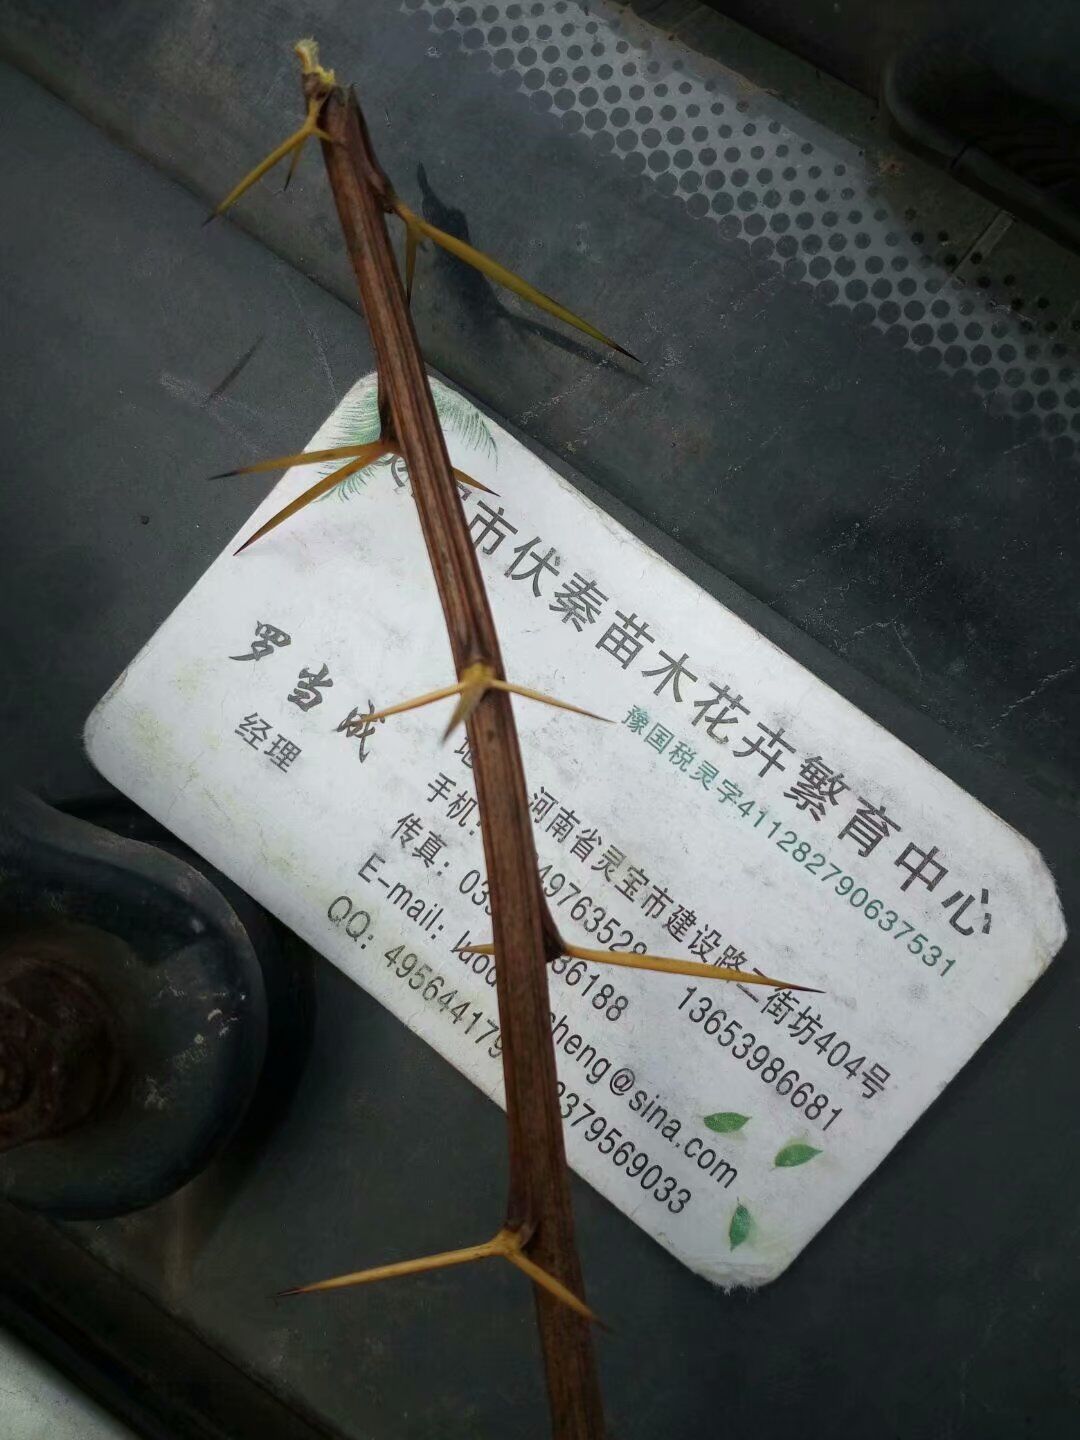 市伏秦苗木花卉繁育中心
豫国税灵字411282790637531
罗当成
经理
河南省灵宝市建设路二街坊404号
手机: 49763528 13653986681
传真: 03 36188
E-mail: cheng@sina.com
QQ: 495644179 379569033